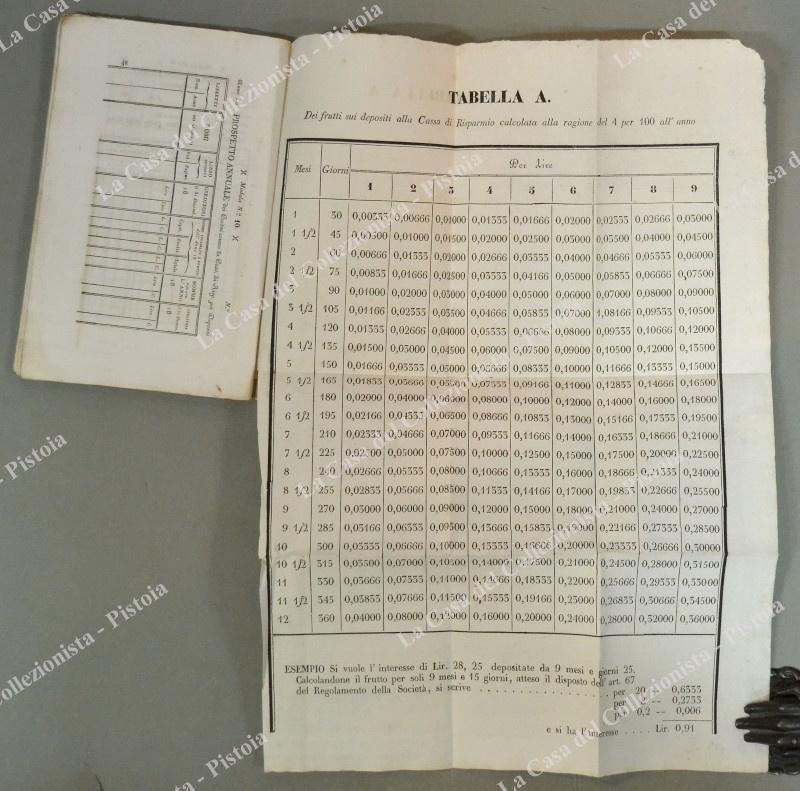 TABELLA A.
Dei frutti sui depositi alla Cassa di Risparmio calcolata alla ragione del 4 per 100 all' anno
Mesi Giorni Per Lire
1 2 3 4 5 6 7 8 9
1 30 0,00333 0,00666 0,01000 0,01333 0,01666 0,02000 0,02333 0,02666 0,03000
1 1/2 45 0,00500 0,01000 0,01500 0,02000 0,02500 0,03000 0,03500 0,04000 0,04500
2 60 0,00666 0,01333 0,02000 0,02666 0,03333 0,04000 0,04666 0,05333 0,06000
2 1/2 75 0,00833 0,01666 0,02500 0,03333 0,04166 0,05000 0,05833 0,06666 0,07500
3 90 0,01000 0,02000 0,03000 0,04000 0,05000 0,06000 0,07000 0,08000 0,09000
3 1/2 105 0,01166 0,02333 0,03500 0,04666 0,05833 0,07000 1,08166 0,09333 0,10500
4 120 0,01333 0,02666 0,04000 0,05333 0,06666 0,08000 0,09333 0,10666 0,12000
4 1/2 135 0,01500 0,03000 0,04500 0,06000 0,07500 0,09000 0,10500 0,12000 0,13500
5 150 0,01666 0,03333 0,05000 0,06666 0,08333 0,10000 0,11666 0,13333 0,15000
5 1/2 165 0,01833 0,03666 0,05500 0,07333 0,09166 0,11000 0,12833 0,14666 0,16500
6 180 0,02000 0,04000 0,06000 0,08000 0,10000 0,12000 0,14000 0,16000 0,18000
6 1/2 195 0,02166 0,04333 0,06500 0,08666 0,10833 0,13000 0,15166 0,17333 0,19500
7 210 0,02333 0,04666 0,07000 0,09333 0,11666 0,14000 0,16333 0,18666 0,21000
7 1/2 225 0,02500 0,05000 0,07500 0,10000 0,12500 0,15000 0,17500 0,20000 0,22500
8 240 0,02666 0,05333 0,08000 0,10666 0,13333 0,16000 0,18666 0,21333 0,24000
8 1/2 255 0,02833 0,05666 0,08500 0,11333 0,14166 0,17000 0,19833 0,22666 0,25500
9 270 0,03000 0,06000 0,09000 0,12000 0,15000 0,18000 0,21000 0,24000 0,27000
9 1/2 285 0,03166 0,06333 0,09500 0,13666 0,15833 0,19000 0,22166 0,27333 0,28500
10 300 0,03333 0,06666 0,10000 0,13333 0,16666 0,20000 0,23333 0,26666 0,30000
10 1/2 315 0,03500 0,07000 0,10500 0,14000 0,17500 0,21000 0,24500 0,28000 0,31500
11 330 0,03666 0,07333 0,11000 0,14666 0,18333 0,22000 0,25666 0,29333 0,33000
11 1/2 345 0,03833 0,07666 0,11500 0,15333 0,19166 0,23000 0,26833 0,30666 0,34500
12 360 0,04000 0,08000 0,12000 0,16000 0,20000 0,24000 0,28000 0,32000 0,36000
ESEMPIO Si vuole l' interesse di Lir. 28, 25 depositate da 9 mesi e giorni 25.
Calcolandone il frutto per soli 9 mesi e 15 giorni, atteso il disposto dell' art. 67
del Regolamento della Società, si scrive . . . . . . . . . . . . . . . per 20 -- 0,6333
per 8 -- 0,2733
per 0,2 -- 0,006
e si ha l'interesse . . . . Lir. 0,91
Modula N.° 10.
PROSPETTO ANNUALE
La Casa del Collezionista - Pistoia